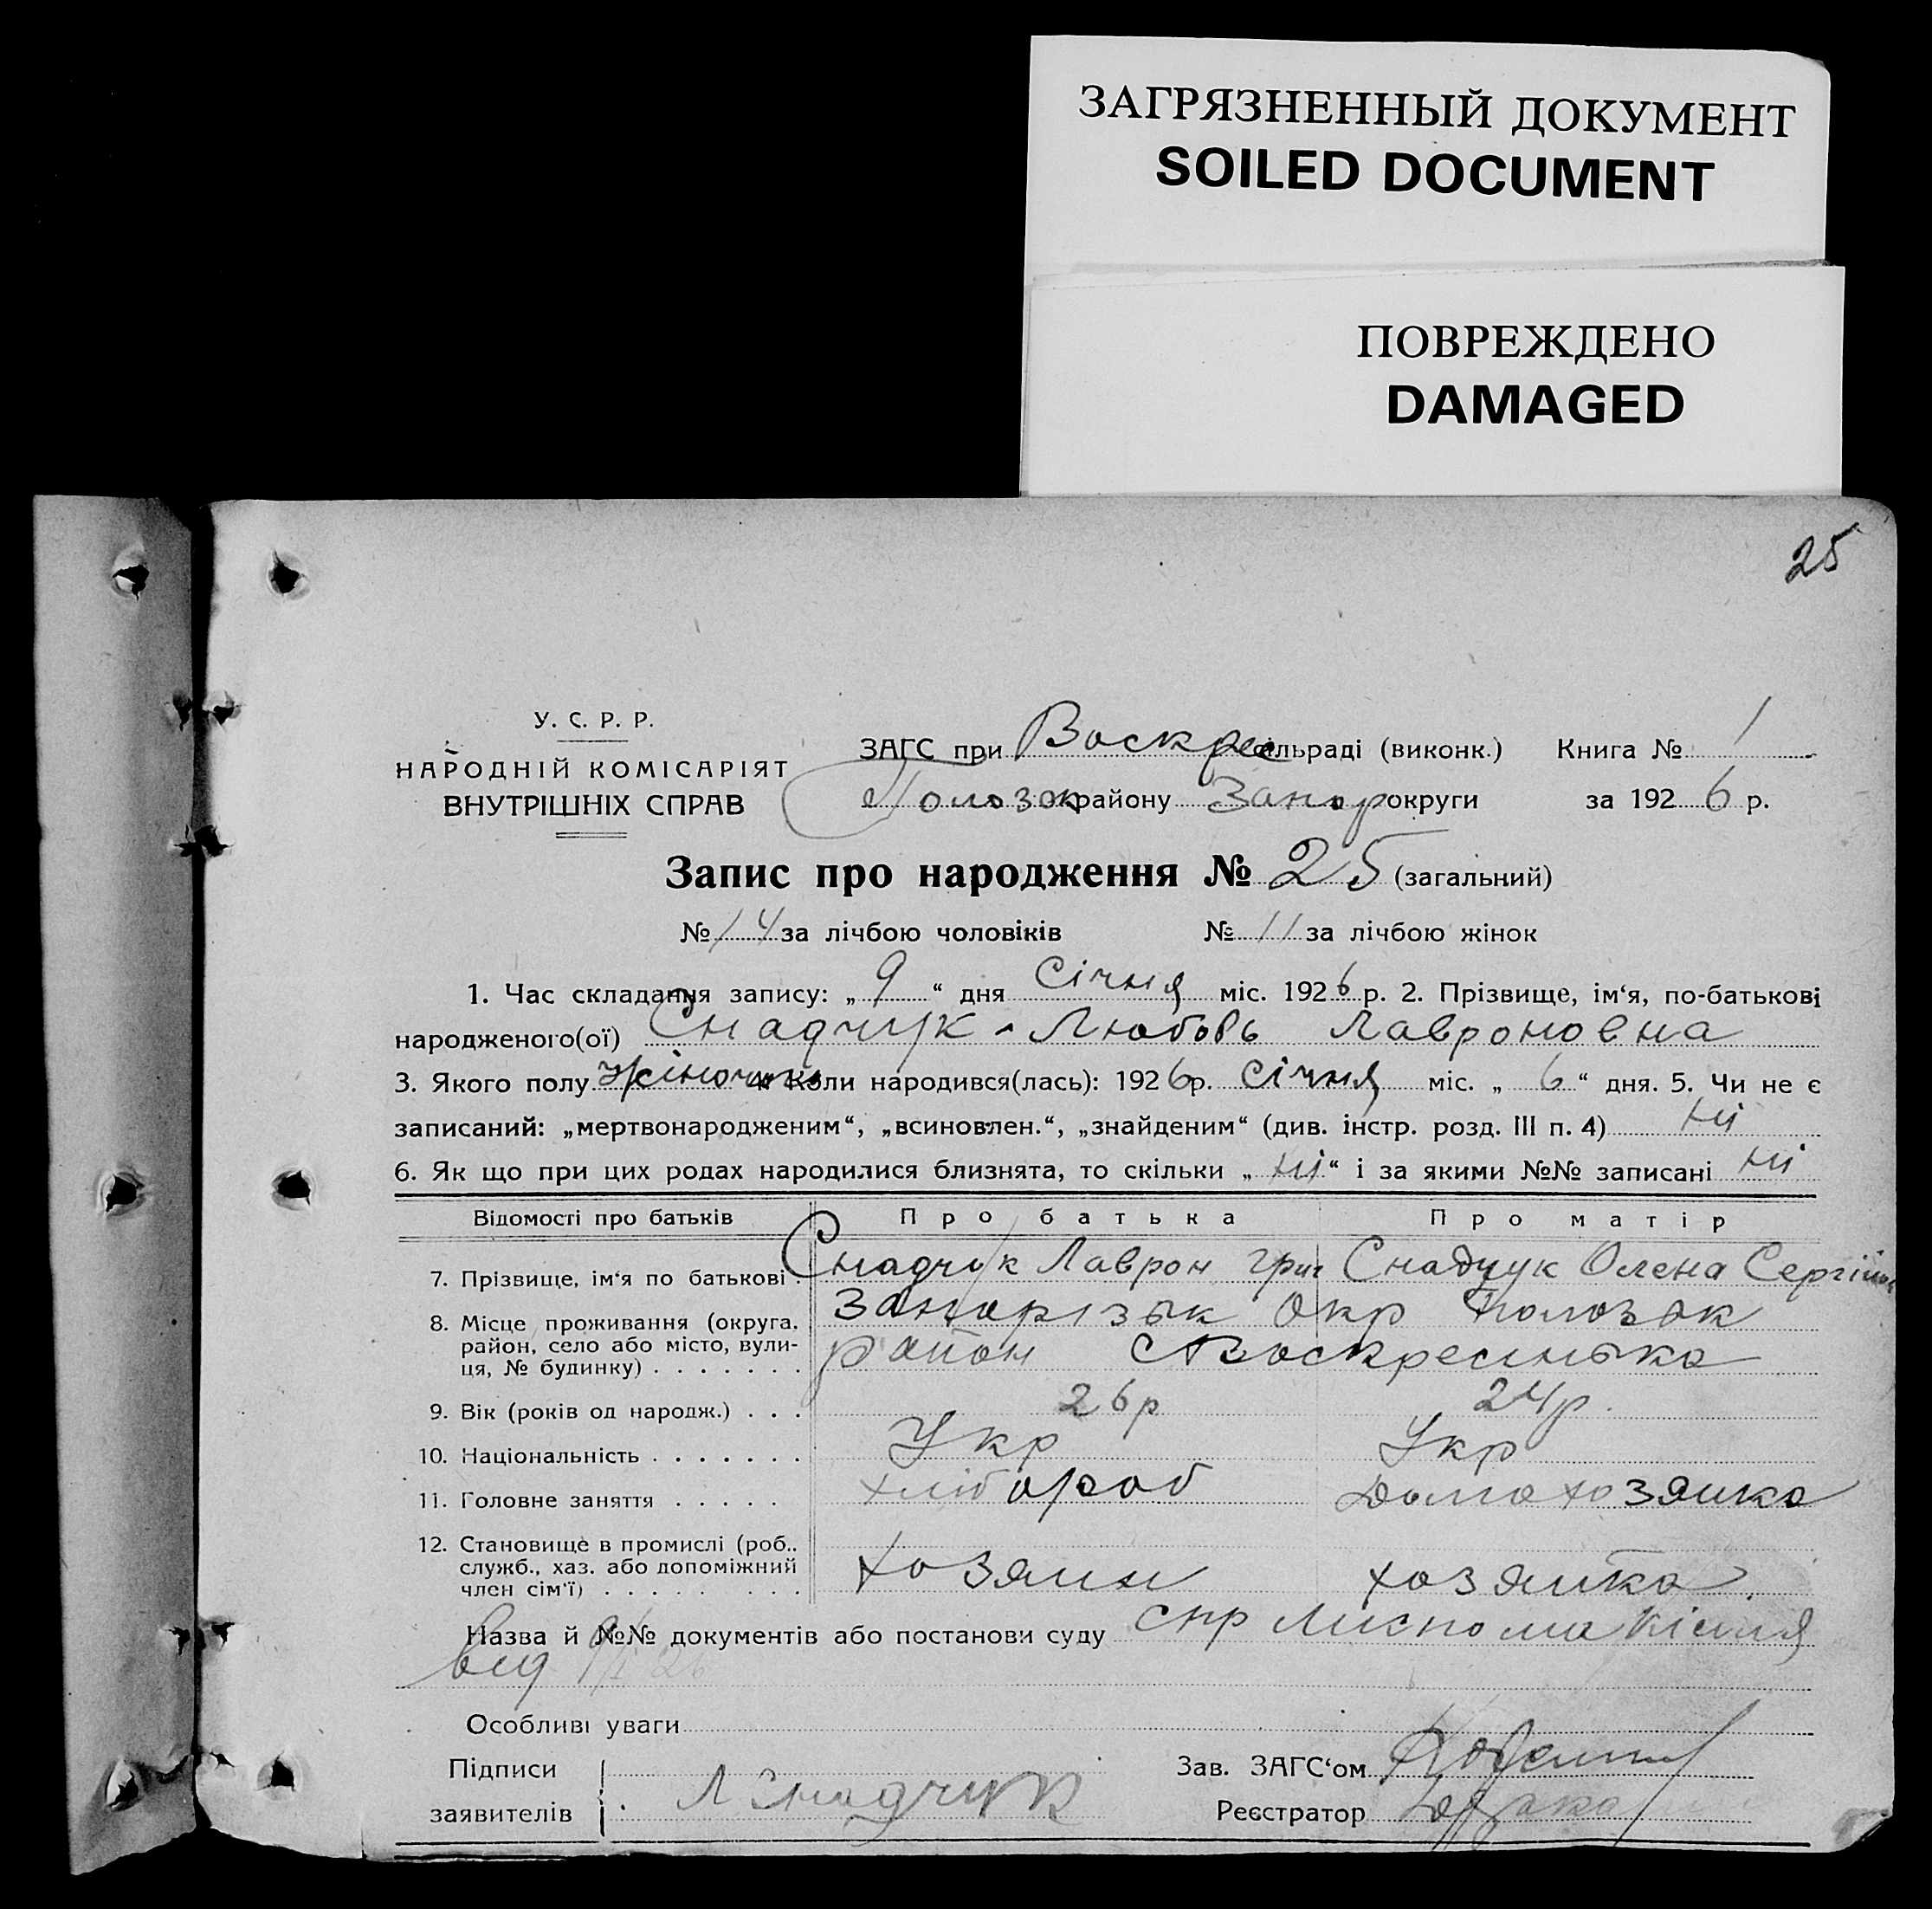 ЗАГРЯЗНЕННЫЙ ДОКУМЕНТ
SOILED DOCUMENT
ПОВРЕЖДЕНО
DAMAGED
25
У. С. Р. Р.
НАРОДНІЙ КОМІСАРІЯТ
ВНУТРІШНІХ СПРАВ
ЗАГС при Воскрес сільраді (виконк.) Книга № 1
Полозок району Запор округи за 1926 р.
Запис про народження № 25 (загальний)
№ 14 за лічбою чоловіків № 11 за лічбою жінок
1. Час складання запису: „ 9 “ дня Січня міс. 1926 р. 2. Прізвище, ім‘я, по-батькові
народженого(ої) Снадчук - Любовь Лавроновна
3. Якого полу жіночи 4. Коли народився(лась): 1926 р. Січня міс. „ 6 “ дня. 5. Чи не є
записаний: „мертвонародженим“, „всиновлен.“, „знайденим“ (див. інстр. розд. III п. 4) ні
6. Як що при цих родах народилися близнята, то скільки „ ні “ і за якими №№ записані ні
Відомості про батьків Про батька Про матір
7. Прізвище, ім‘я по батькові Снадчук Лаврон Григ Снадчук Олена Сергіївн
8. Місце проживання (округа, район, село або місто, вулиця, № будинку) Запорізьк Окр Полозьк
район с Воскресинька
9. Вік (років од народж.) 26 р 24 р.
10. Національність Укр Укр
11. Головне заняття хлібороб Домохозяика
12. Становище в промислі (роб., служб., хаз. або допоміжний член сім‘ї) хозяин хозяика
Назва й №№ документів або постанови суду спр
від
Особливі уваги
Підписи заявителів Л Снадчук
Зав. ЗАГС‘ом
Реєстратор